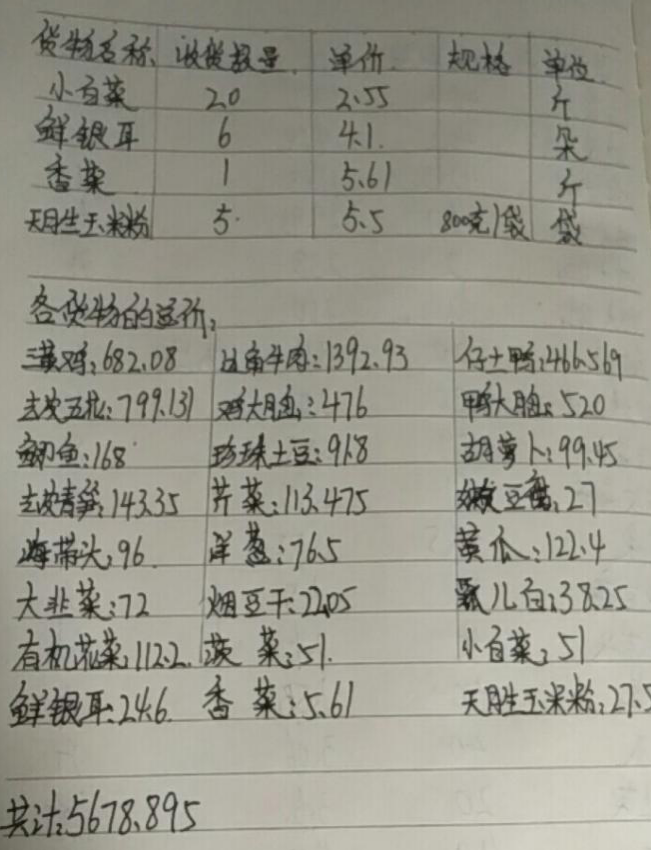 货物名称 收货数量 单价 规格 单位
小白菜 20 2.55 斤
鲜银耳 6 4.1 朵
香菜 1 5.61 斤
天月生玉米粉 5 5.5 800克/袋 袋
各货物的总价:
三黄鸡:682.08 牛肉:1392.93 仔土鸭:466.569
去皮五花:799.131 鸡大胸:476 鸭大胸:520
鲫鱼:168 珍珠土豆:91.8 胡萝卜:99.45
去皮青笋:143.35 芹菜:113.475 嫩豆腐:27
海带头:96 洋葱:76.5 黄瓜:122.4
大韭菜:72 烟豆干:22.05 瓢儿白:38.25
有机花菜:112.2 菠菜:51 小白菜:51
鲜银耳:24.6 香菜:5.61 天月生玉米粉:27.5
共计:5678.895